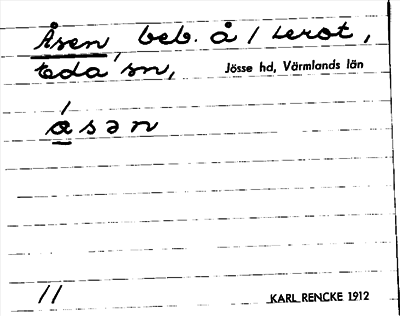 Åsen, beb. å 1 Lerot,
Eda sn, Jösse hd, Värmlands län
ásən
11 KARL RENCKE 1912